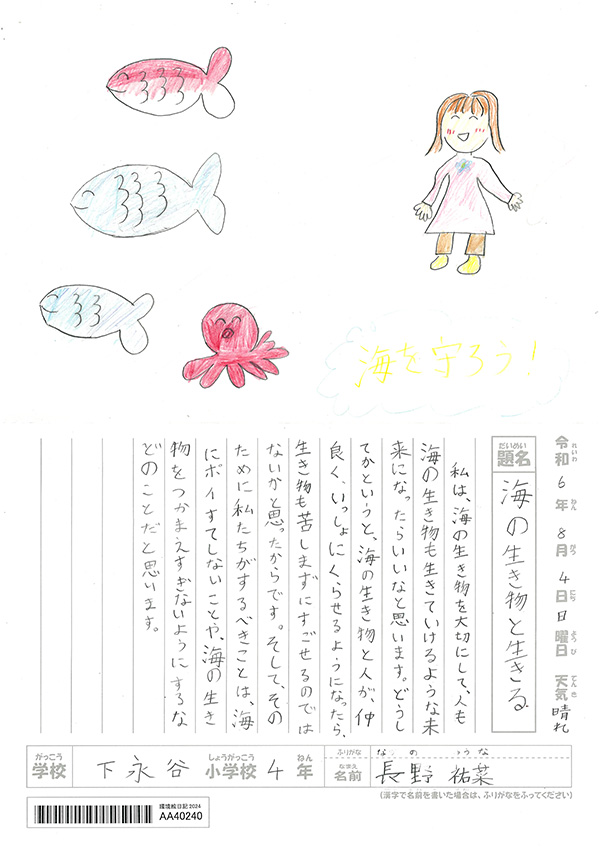 海を守ろう！
令和6年8月4日日曜日 天気 晴れ
れいわ ねん がつ にち ようび てんき
だいめい
題名
海の生き物と生きる
私は、海の生き物を大切にして、人も
海の生き物も生きていけるような未
来になったらいいなと思います。どうし
てかというと、海の生き物と人が、仲
良く、いっしょにくらせるようになったら、
生き物も苦しまずにすごせるのでは
ないかと思ったからです。そして、その
ために私たちがするべきことは、海
にポイすてしないことや、海の生き
物をつかまえすぎないようにするな
どのことだと思います。
がっこう しょうがっこう ねん
学校 下永谷 小学校 4年
ふりがな なの うな
なまえ
名前 長野 祐菜
(漢字で名前を書いた場合は、ふりがなをふってください)
環境絵日記 2024
AA40240